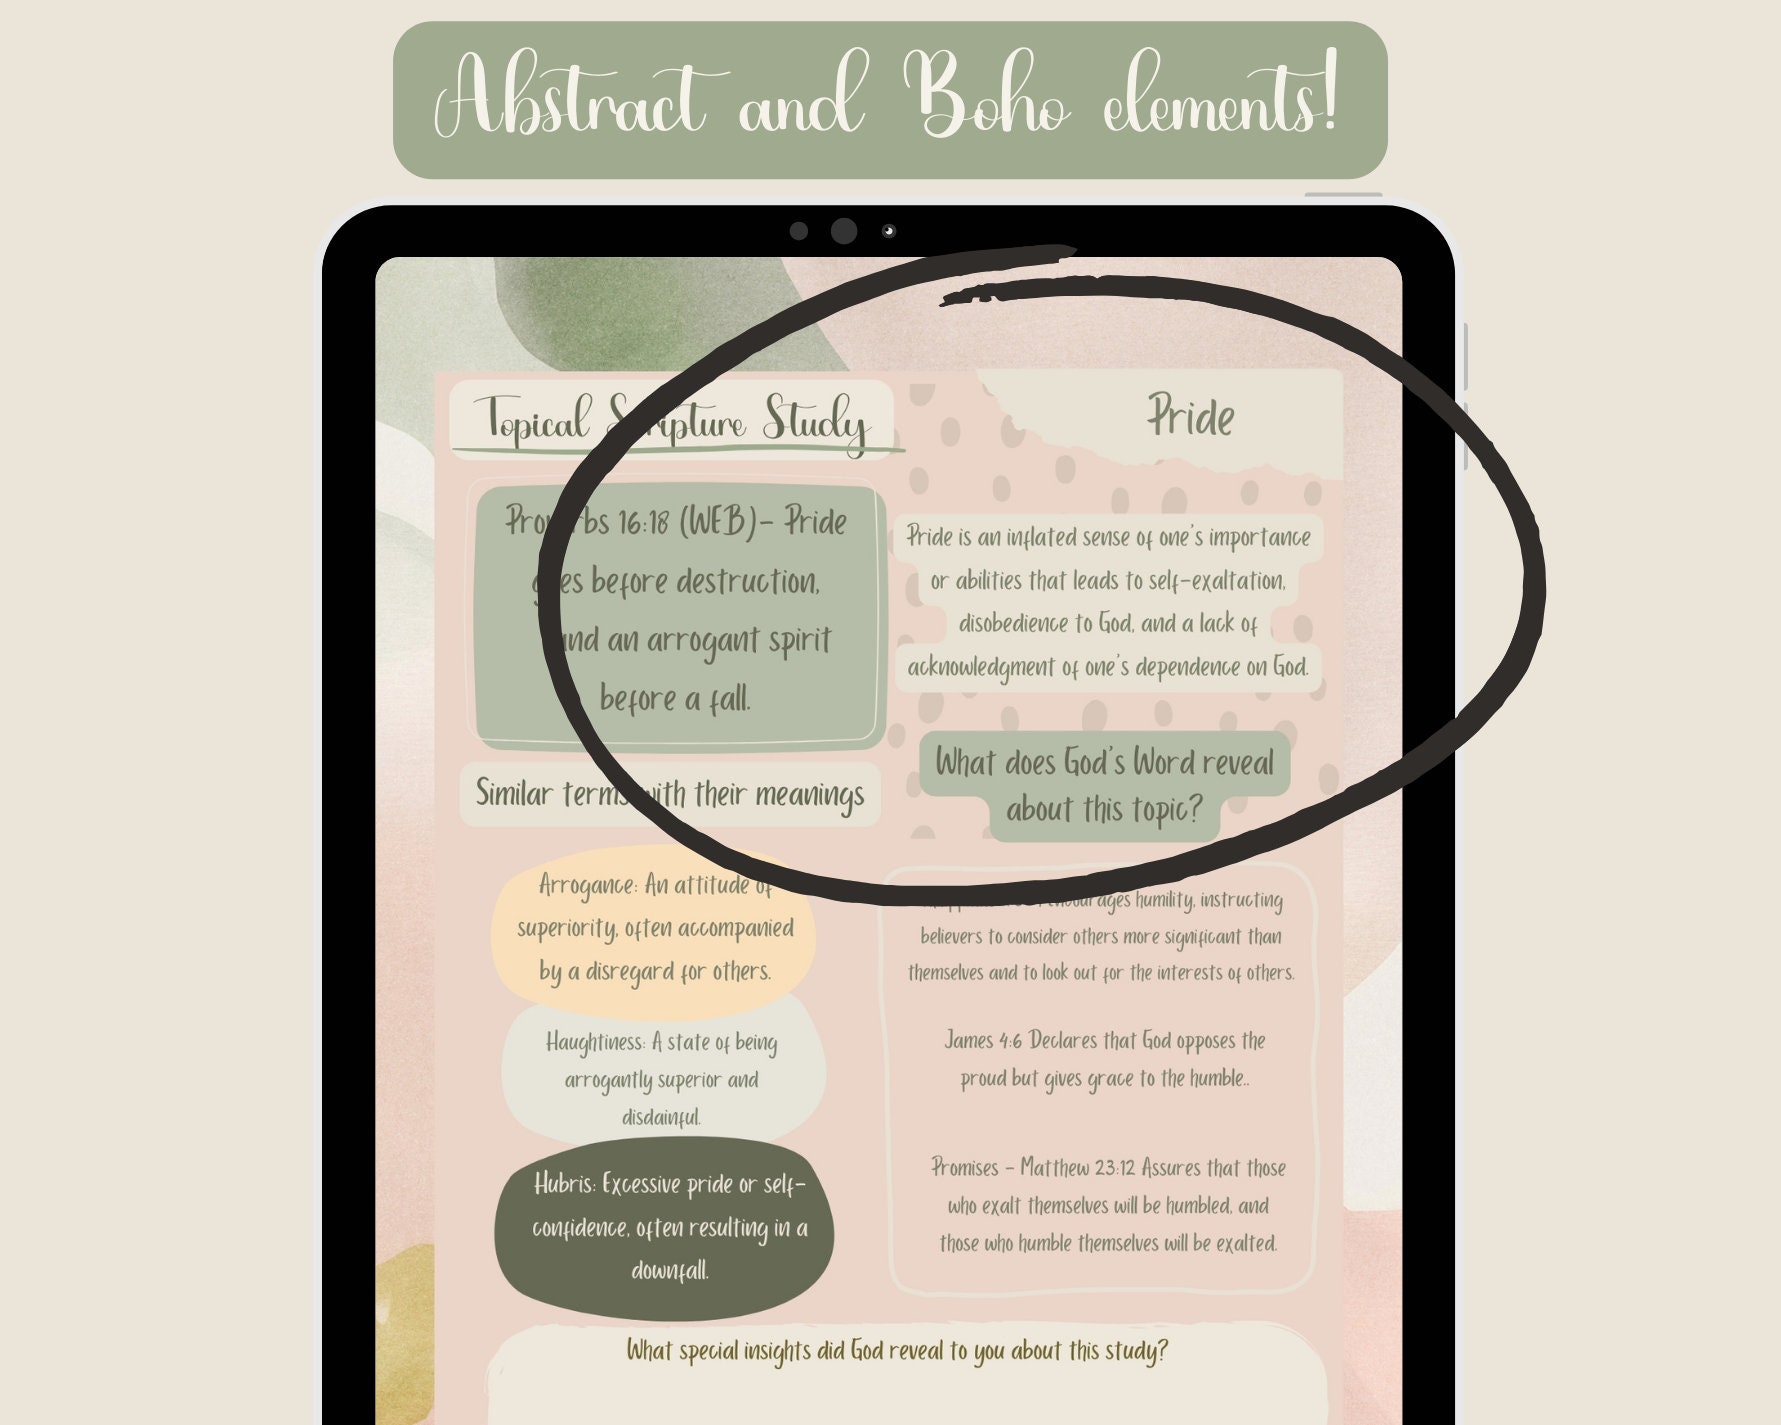 Abstract and Boho elements!
Topical Scripture Study
Proverbs 16:18 (WEB)- Pride
goes before destruction,
and an arrogant spirit
before a fall.
Similar terms with their meanings
Arrogance: An attitude of
superiority, often accompanied
by a disregard for others.
Haughtiness: A state of being
arrogantly superior and
disdainful.
Hubris: Excessive pride or self-
confidence, often resulting in a
downfall.
Pride
Pride is an inflated sense of one's importance
or abilities that leads to self-exaltation,
disobedience to God, and a lack of
acknowledgment of one's dependence on God.
What does God's Word reveal
about this topic?
encourages humility, instructing
believers to consider others more significant than
themselves and to look out for the interests of others.
James 4:6 Declares that God opposes the
proud but gives grace to the humble..
Promises - Matthew 23:12 Assures that those
who exalt themselves will be humbled, and
those who humble themselves will be exalted.
What special insights did God reveal to you about this study?